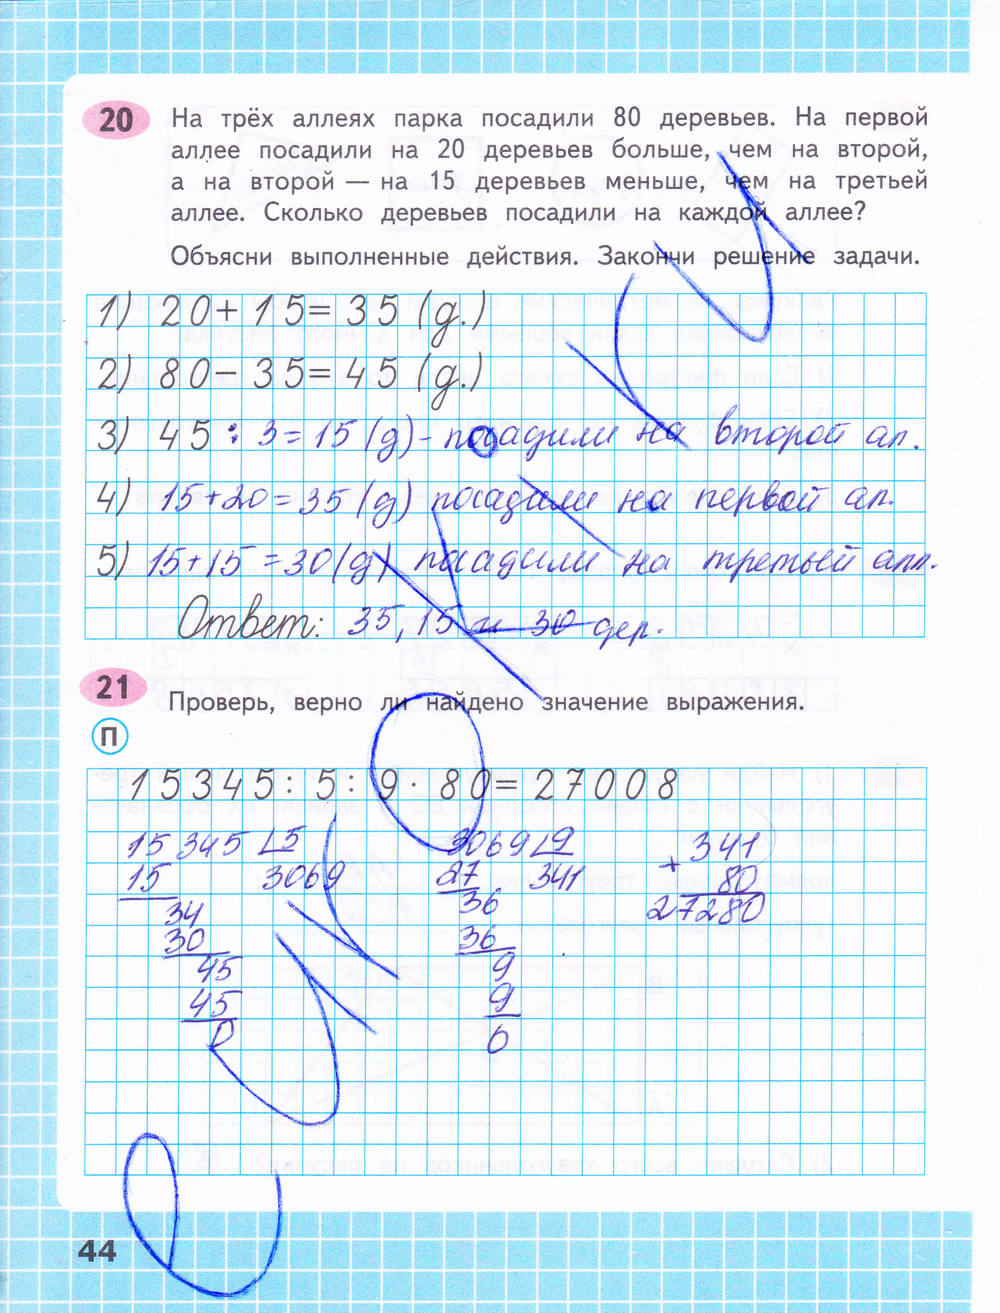 20 На трёх аллеях парка посадили 80 деревьев. На первой
аллее посадили на 20 деревьев больше, чем на второй,
а на второй — на 15 деревьев меньше, чем на третьей
аллее. Сколько деревьев посадили на каждой аллее?
Объясни выполненные действия. Закончи решение задачи.
1) 20 + 15 = 35 (д.)
2) 80 − 35 = 45 (д.)
3) 45 : 3 = 15 (д) - посадили на второй ал.
4) 15 + 20 = 35 (д) посадили на первой ал.
5) 15 + 15 = 30 (д) посадили на третьей алл.
Ответ: 35, 15 и 30 дер.
21 Проверь, верно ли найдено значение выражения.
П
15345 : 5 : 9 · 80 = 27008
15345 5 3069 9 341
15 3069 27 341 + 80
34 36 27280
30 36
45 9
45 9
0 0
44